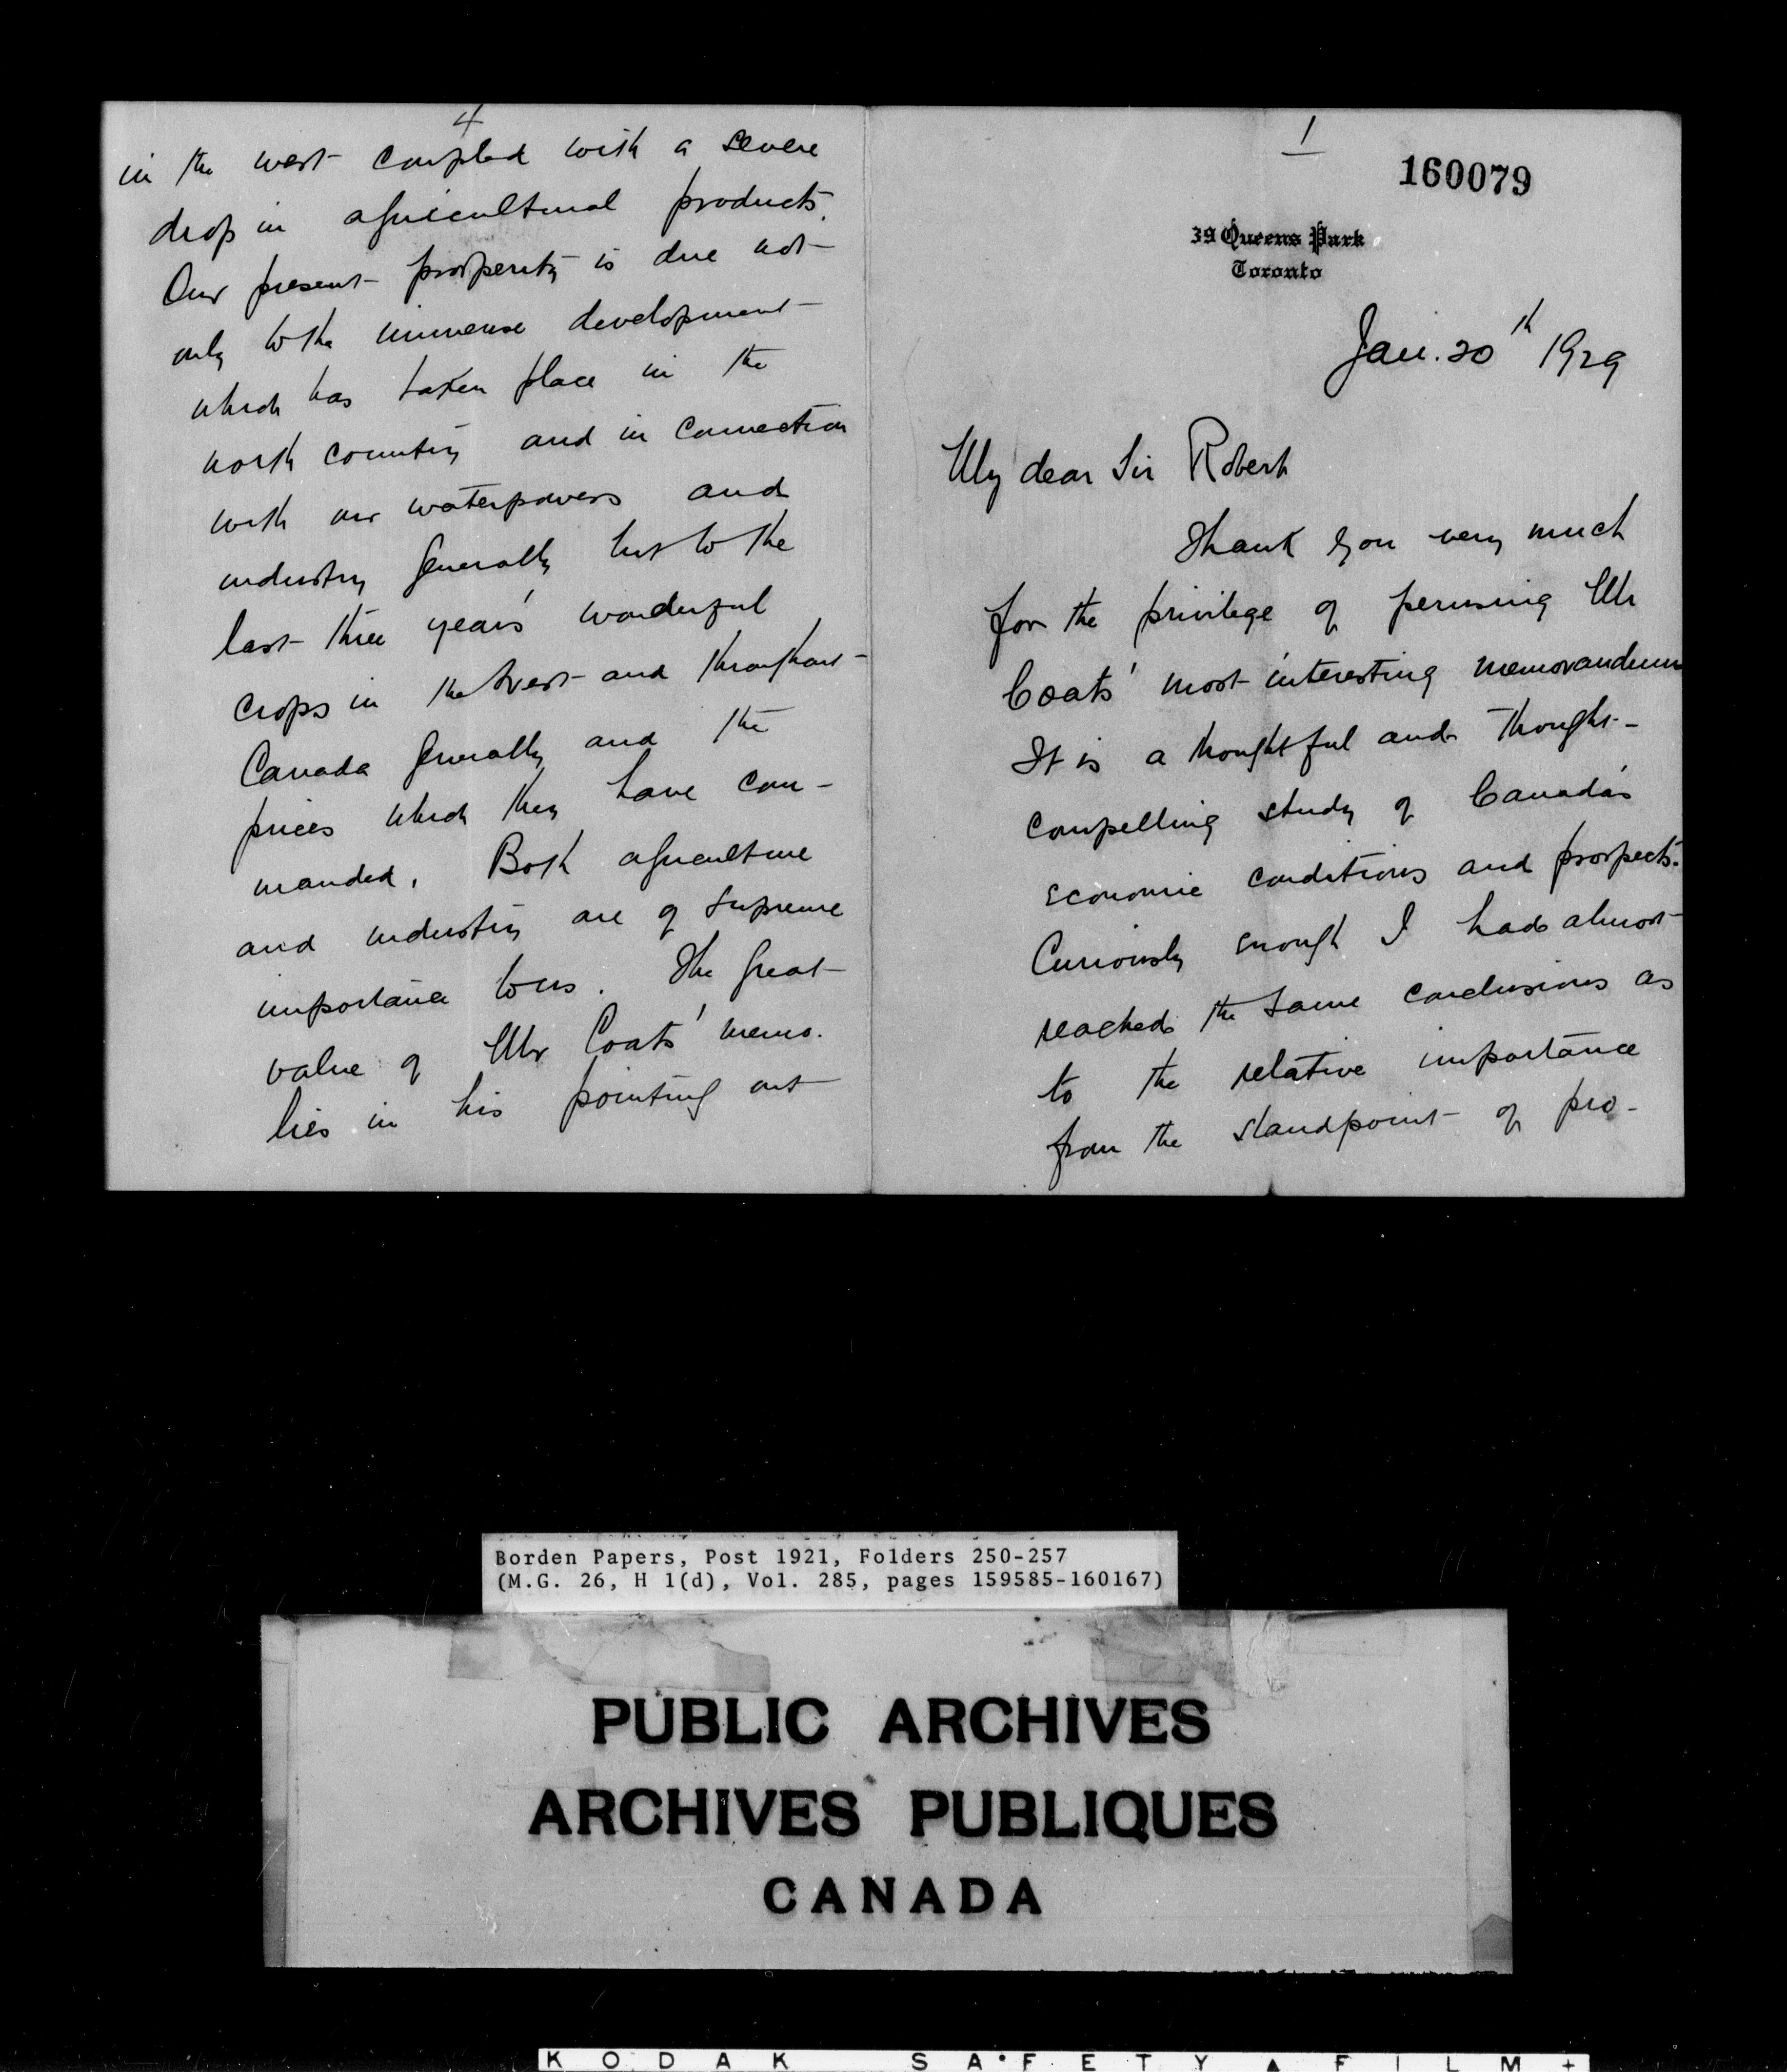 4
in the west coupled with a severe
drop in agricultural products.
Our present prosperity is due not
only to the immense development
which has taken place in the
north country and in connection
with our waterpowers and
industry generally but to the
last three years' wonderful
crops in the West and throughout
Canada generally and the
prices which they have com-
manded. Both agriculture
and industry are of supreme
importance to us. The great
value of Mr Coats' memo.
lies in his pointing out
1
160079
39 Queens Park
Toronto
Jan. 20th 1929
My dear Sir Robert
Thank you very much
for the privilege of perusing Mr
Coats' most interesting memorandum
It is a thoughtful and thought-
compelling study of Canada's
economic conditions and prospects.
Curiously enough I had almost
reached the same conclusions as
to the relative importance
from the standpoint of pro-
Borden Papers, Post 1921, Folders 250-257
(M.G. 26, H 1(d), Vol. 285, pages 159585-160167)
PUBLIC ARCHIVES
ARCHIVES PUBLIQUES
CANADA
KODAK SAFETY ▲ FILM +